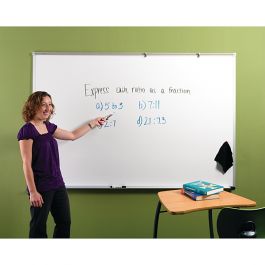 Express each ratio as a fraction
a) 5 to 3 b) 7:11
2:7 d) 21:73